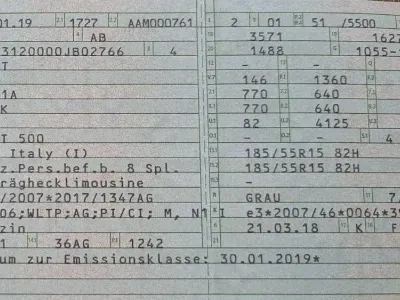 01.19 1727 AAM000761 2 01 51 /5500
AB 3571 1627
3120000JB02766 4 1488 1055-
T - -
146 1360
1A 770 640
K 770 640
82 4125
T 500 - 4
Italy (I) 185/55R15 82H
z.Pers.bef.b. 8 Spl. 185/55R15 82H
räghecklimousine -
/2007*2017/1347AG GRAU 7/
06;WLTP;AG;PI/CI; M, N1 I e3*2007/46*0064*3
zin 21.03.18 K F
1 36AG 1242
um zur Emissionsklasse: 30.01.2019*